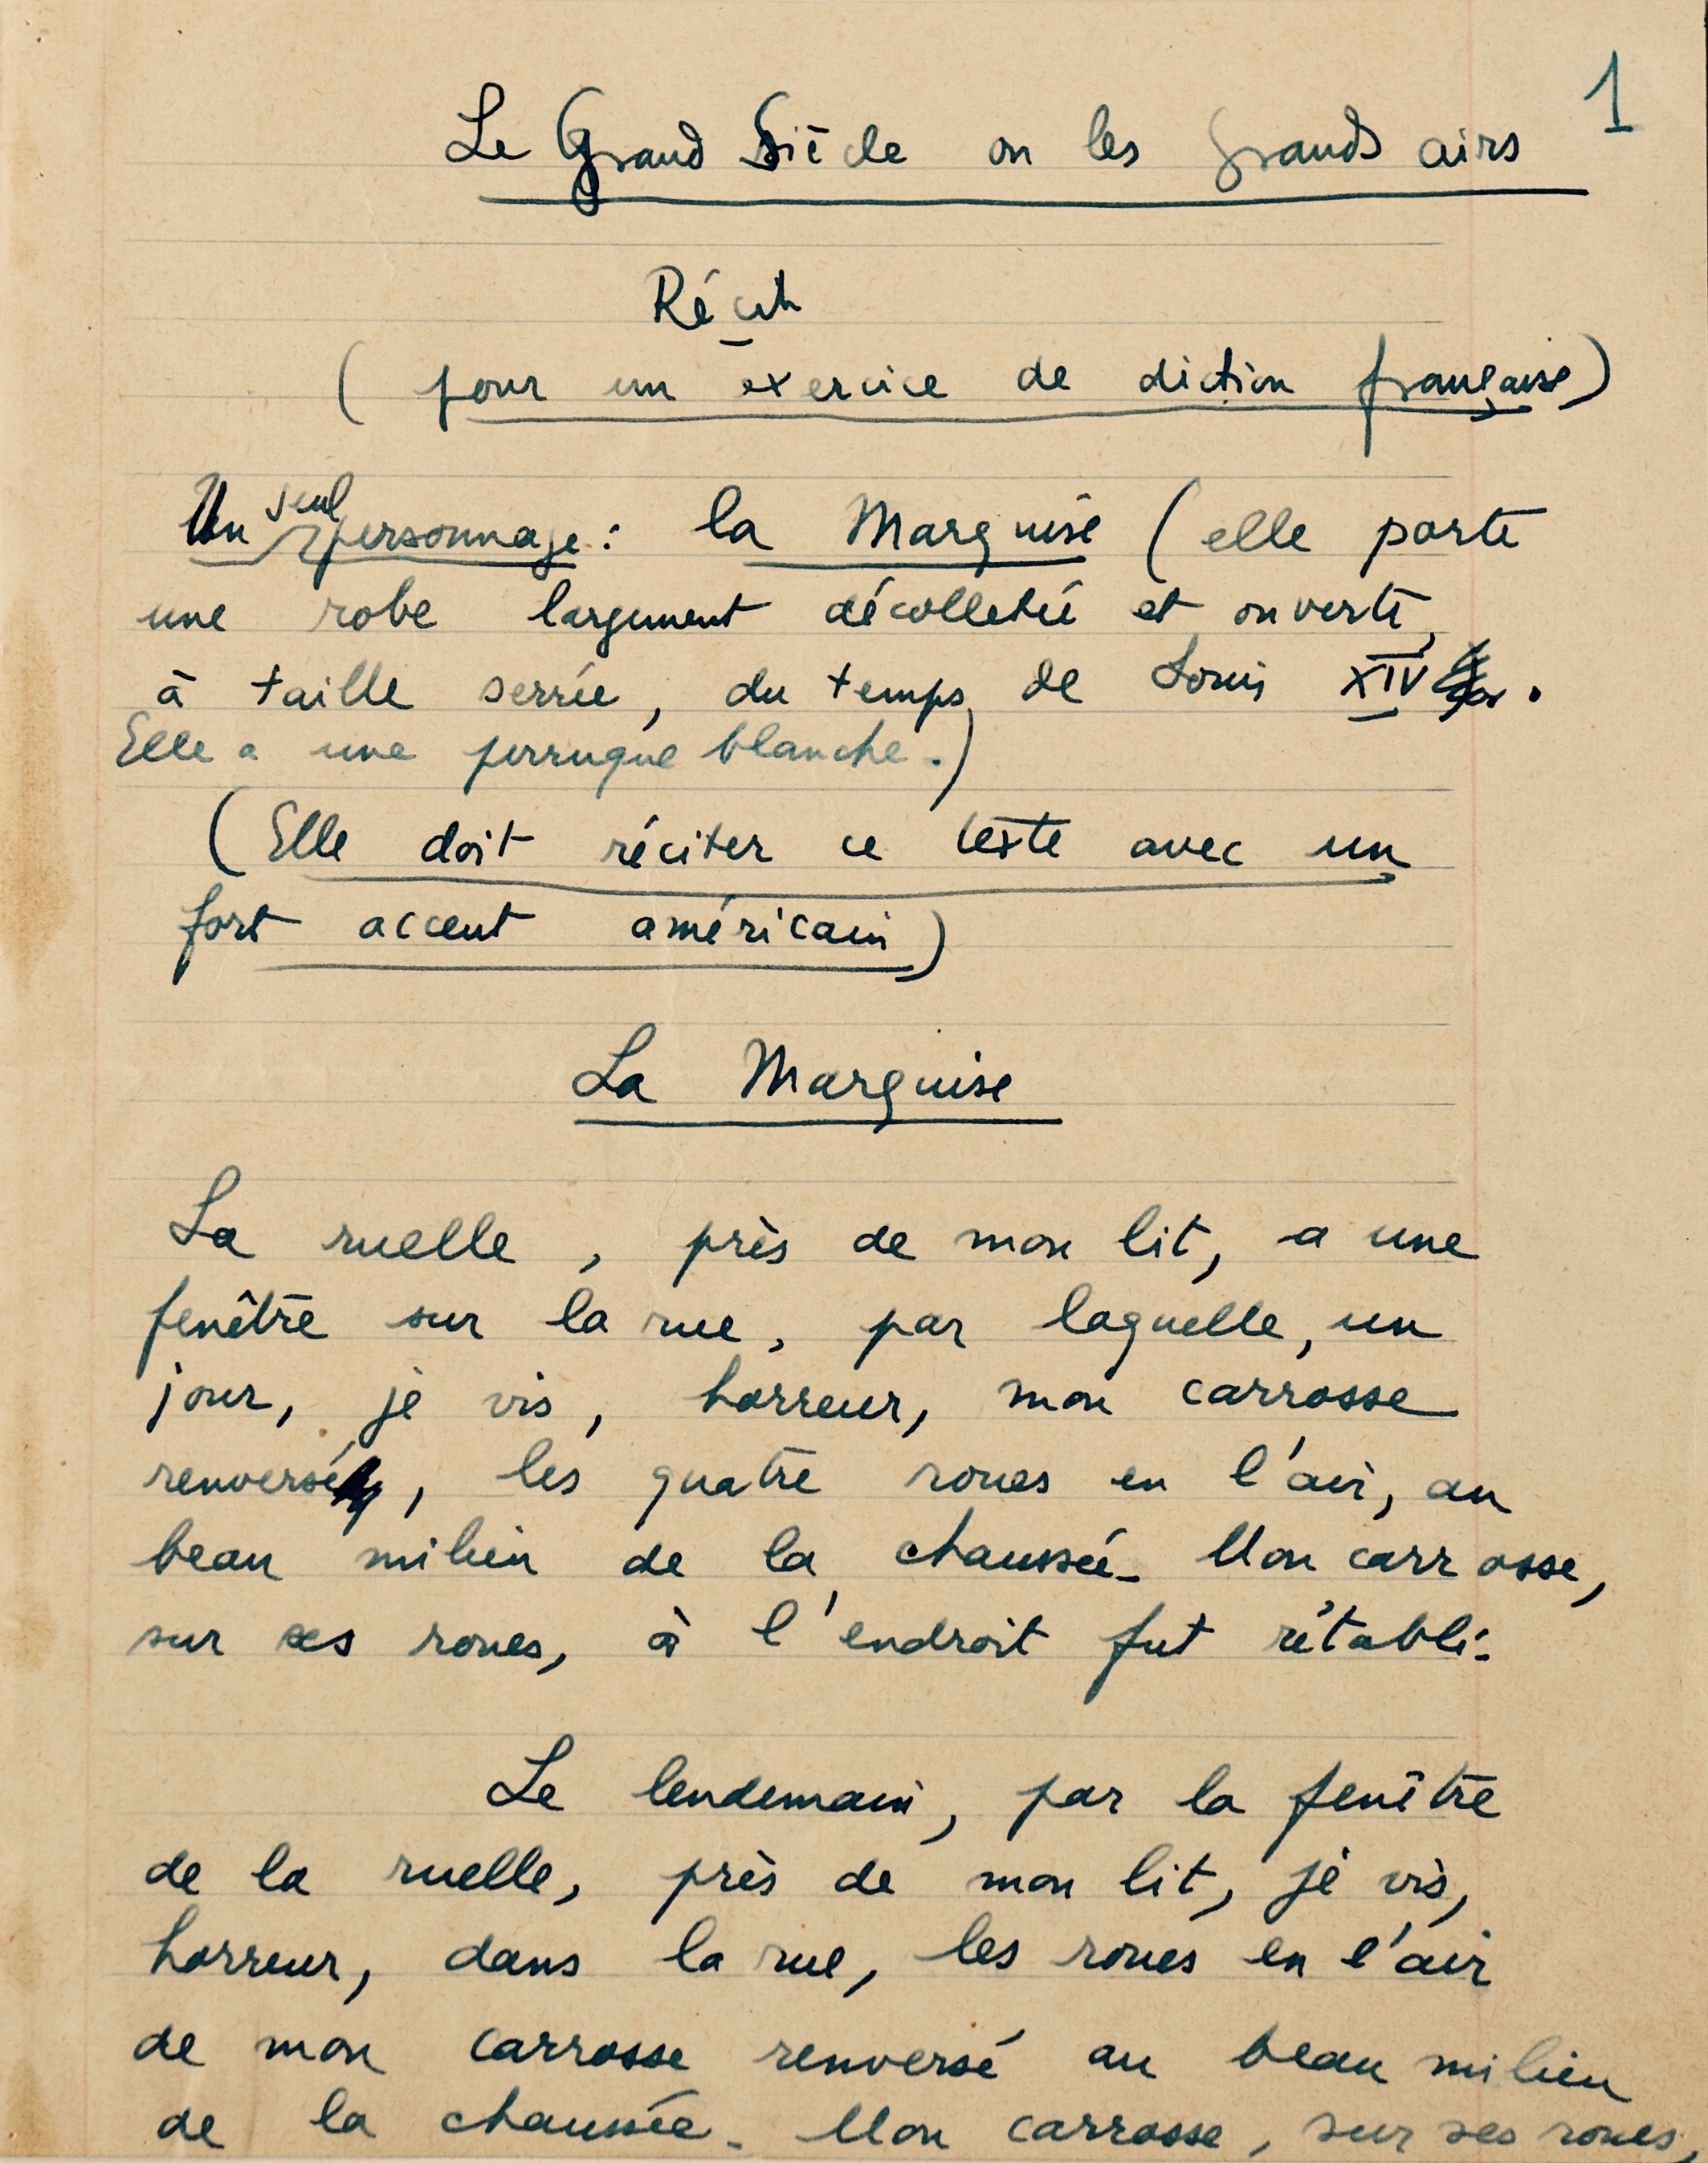 1
Le Grand Siècle ou les grands airs
Récit
(pour un exercice de diction française)
Un seul personnage : la Marquise (elle porte
une robe largement décolletée et ouverte,
à taille serrée, du temps de Louis XIV.
Elle a une perruque blanche.)
(Elle doit réciter ce texte avec un
fort accent américain)
La Marquise
La ruelle, près de mon lit, a une
fenêtre sur la rue, par laquelle, un
jour, je vis, horreur, mon carrosse
renversé, les quatre roues en l'air, au
beau milieu de la chaussée. Mon carrosse,
sur ses roues, à l'endroit fut rétabli.
Le lendemain, par la fenêtre
de la ruelle, près de mon lit, je vis,
horreur, dans la rue, les roues en l'air
de mon carrosse renversé au beau milieu
de la chaussée. Mon carrosse, sur ses roues,